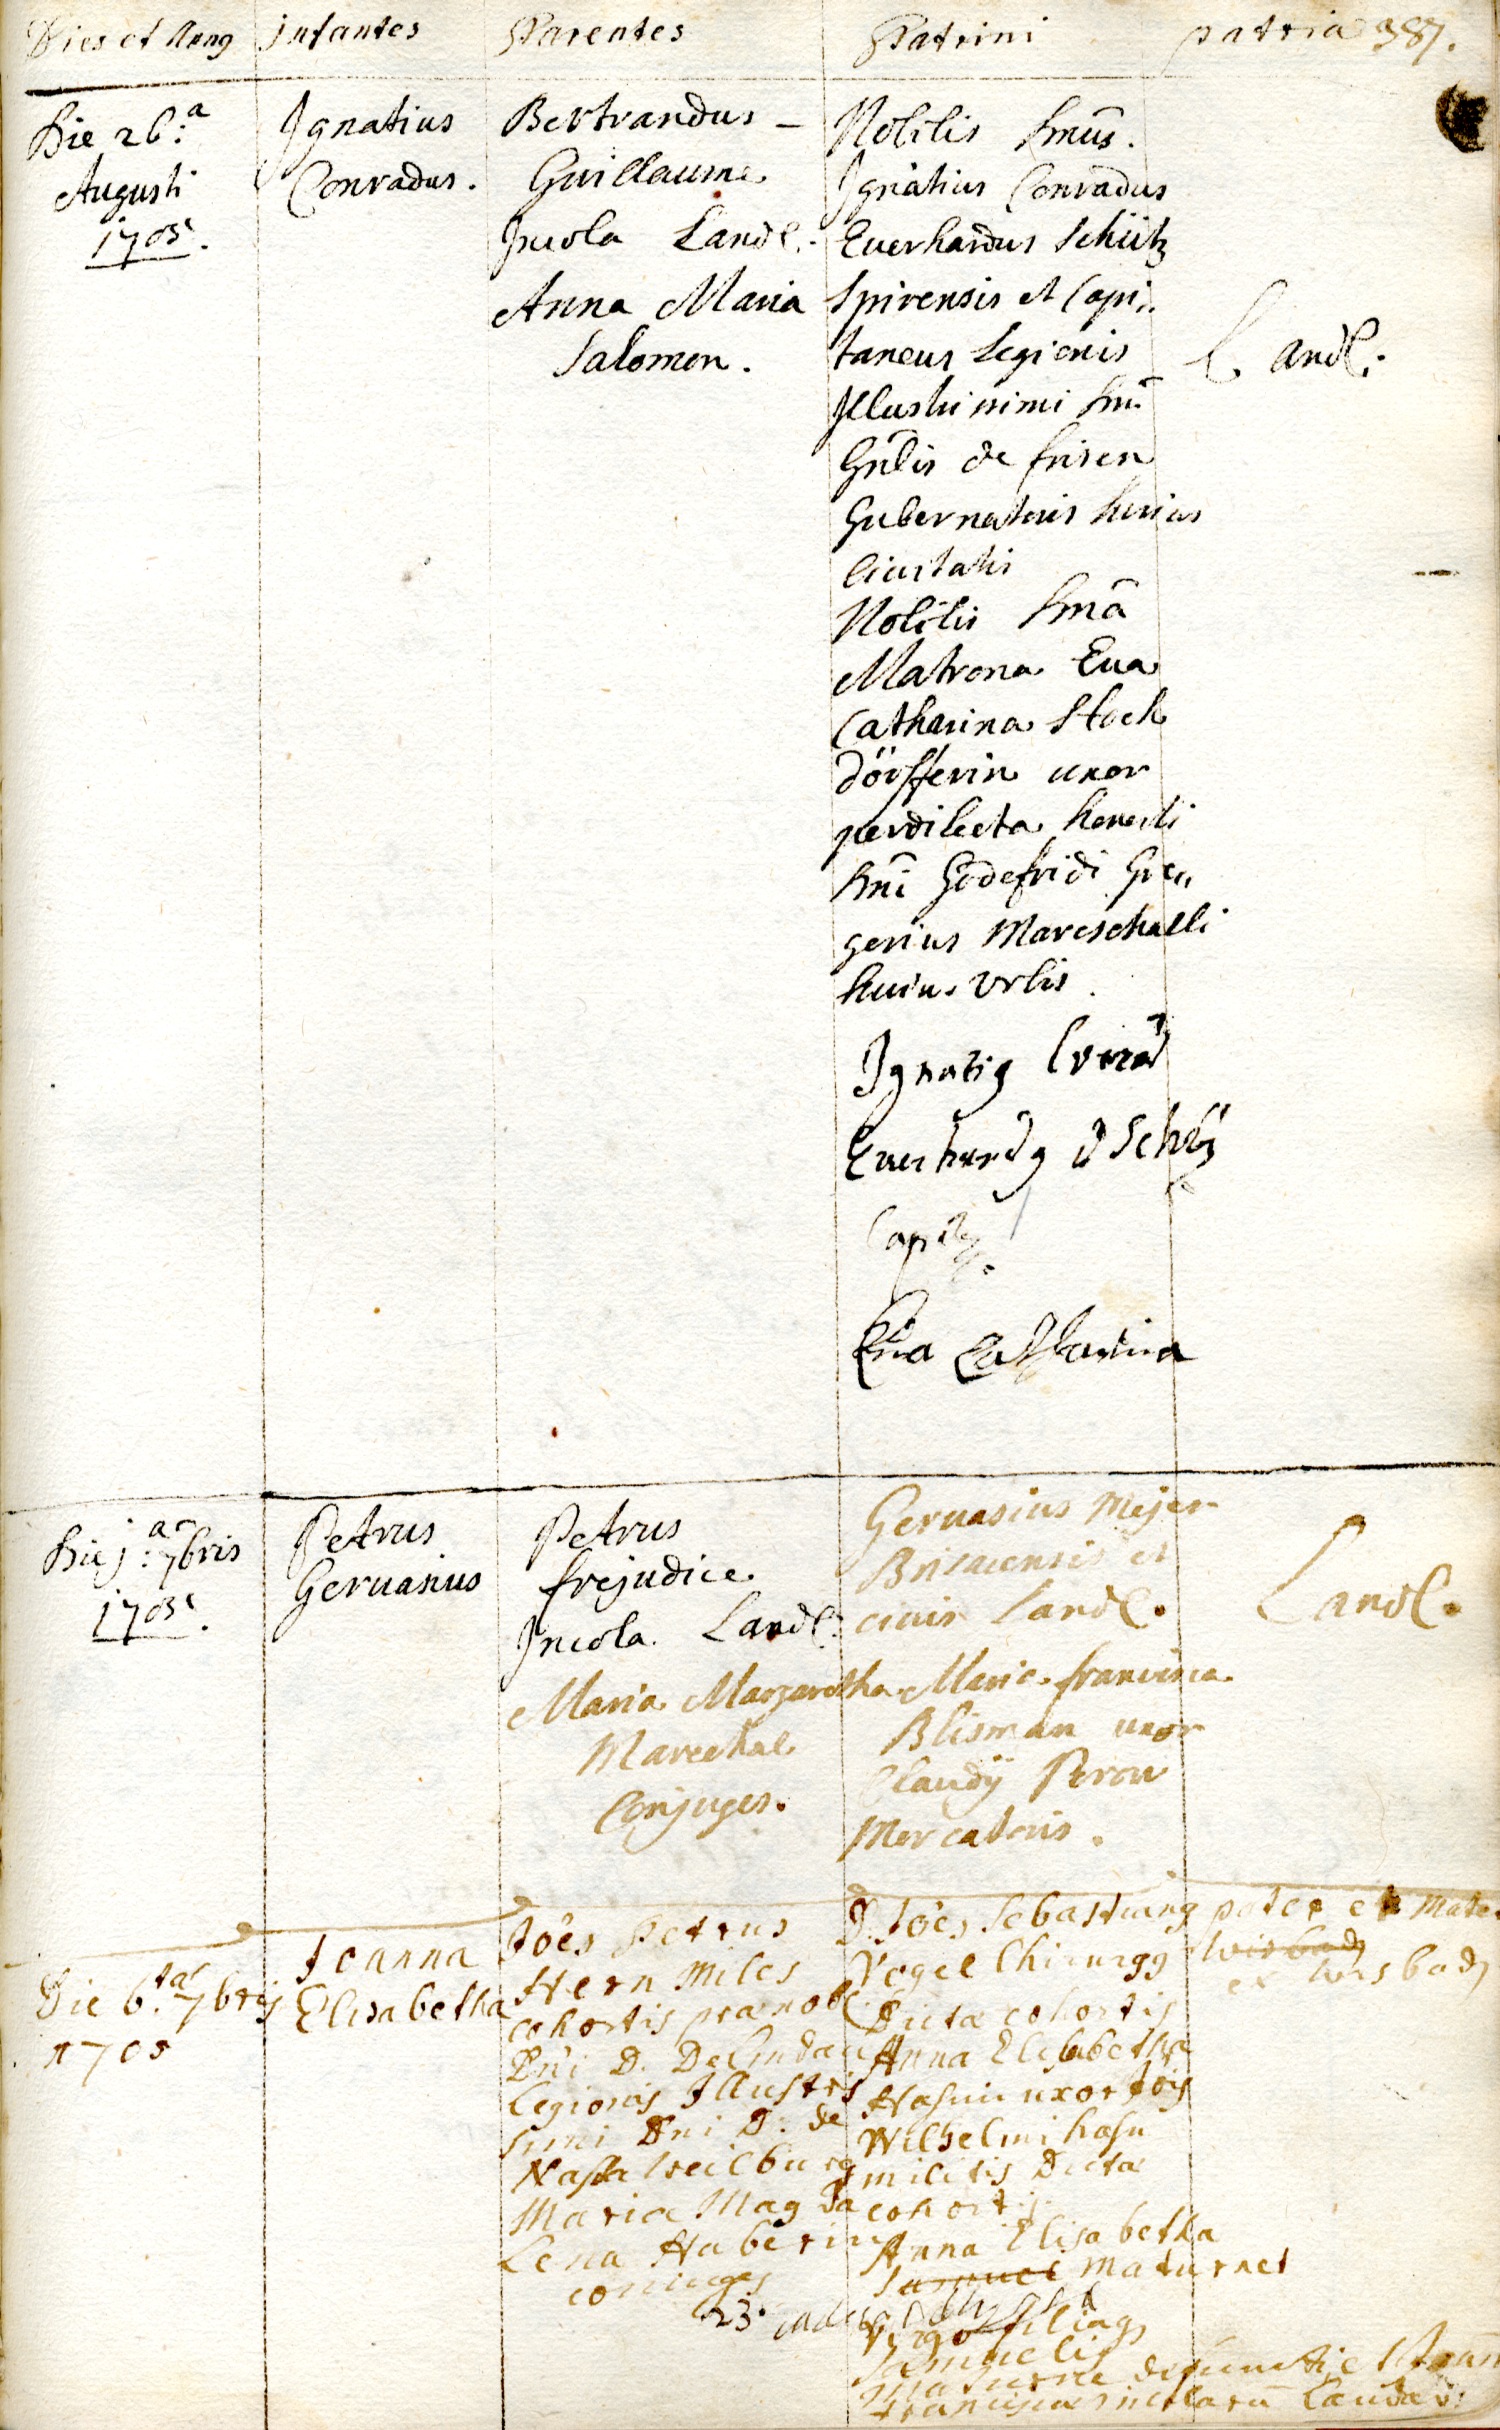 Dies et Annq Infantes Parentes Patrini patria 387.
Die 26:a
Augusti
1705.
Ignatius
Conradus.
Bertrandus -
Guillaume
Incola Landl.
Anna Maria
Salomon.
Nobilis
Ignatius Conradus
Everhardus Schütz
Spirensis et Capi-
taneus Legionis
Illustrissimi
Gnlis de frisen
Gubernatoris huius
Civitatis
Nobilis
Matrona Eva
Catharina Stock
dörfferin uxor
perdilecta honesti
Godefridi Gre„
gorius Mareschalli
huius Urbis.
Ignatiq
Everhardq Schüz
Eva Catharina
Landl.
Die j:a 7bris
1705.
Petrus
Gervasius
Petrus
frejudice
Incola Landl.
Maria Margaretha
Marechal
Conjuges.
Gervasius Mejer
Brisacensis et
civis Landl.
Maria francisca
Blisman uxor
Claudij Perou
Mercatoris.
Landl.
Die 6.ta 7bris
1705
Joanna
Elisabetha
Joēs Petrus
Hern Miles
cohortis praenobl.
Dni D.
Legionis Illustris
simi Dni D: de
Nassa Weilburg
Maria Magda
Lena Haberin
coniuges
23.
D. Joēs Sebastianq
Vogel Chirurgq
Dicta cohortis
Anna Elisabetha
Hasnin uxor Jois
Wilhelmi hasn
militis Dicta
cohortis
Anna Elisabetha
Samuel Maturnet
Virgo filia
Samuelis
defuncti e
Landav:
pater et Mater
Wisbadq
ex Wisbadq